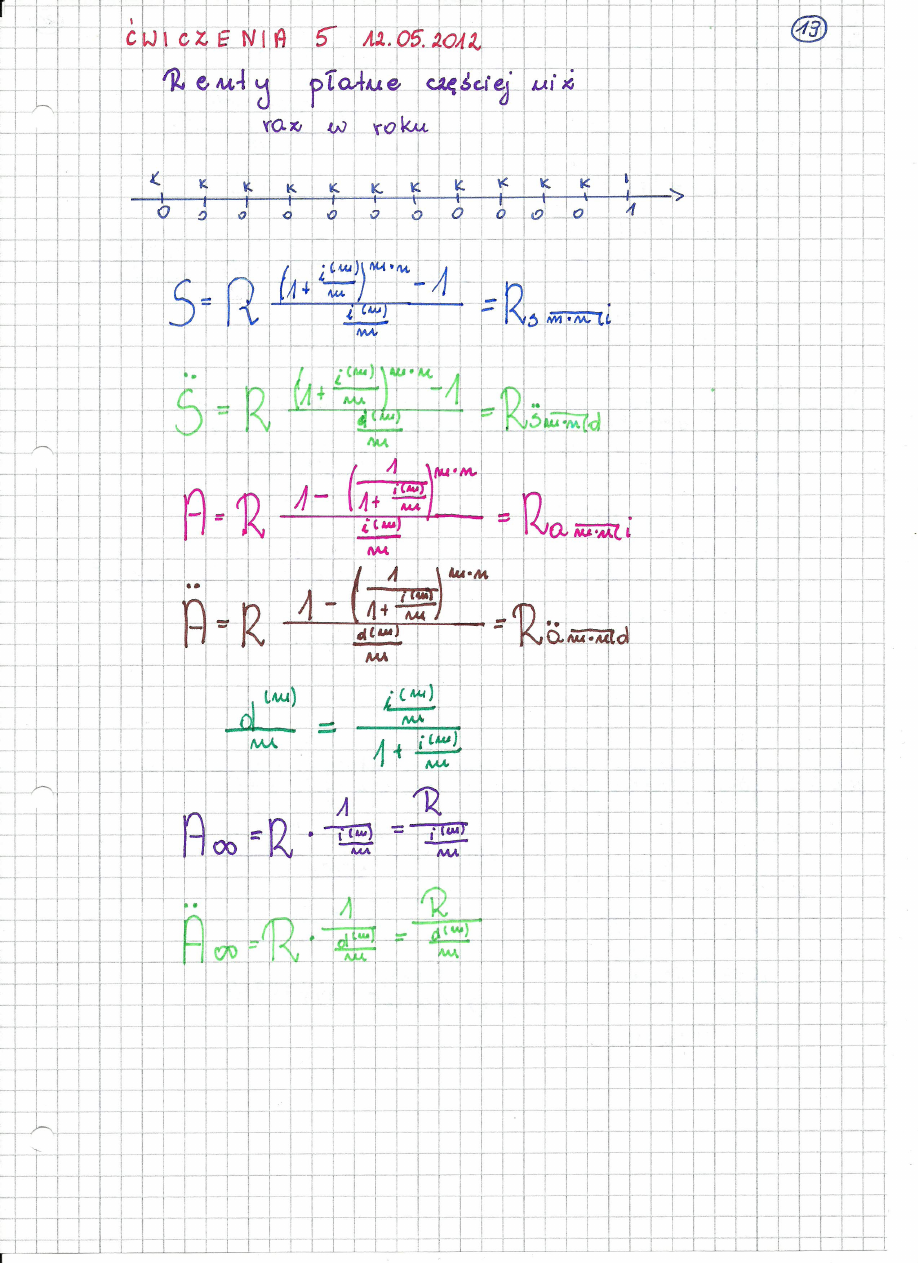 ĆWICZENIA 5 12.05.2012
19
Renty płatne częściej niż
raz w roku
K K K K K K K K K K K 1
0 0 0 0 0 0 0 0 0 0 0 1
S = R \frac{(1+\frac{i^{(m)}}{m})^{m \cdot n} - 1}{\frac{i^{(m)}}{m}} = R_{s \overline{m \cdot n}| i}
\ddot{S} = R \frac{(1+\frac{i^{(m)}}{m})^{m \cdot n} - 1}{\frac{d^{(m)}}{m}} = R_{\ddot{s} \overline{m \cdot n}| d}
A = R \frac{1 - (\frac{1}{1+\frac{i^{(m)}}{m}})^{m \cdot n}}{\frac{i^{(m)}}{m}} = R_{a \overline{m \cdot n}| i}
\ddot{A} = R \frac{1 - (\frac{1}{1+\frac{i^{(m)}}{m}})^{m \cdot n}}{\frac{d^{(m)}}{m}} = R_{\ddot{a} \overline{m \cdot n}| d}
\frac{d^{(m)}}{m} = \frac{\frac{i^{(m)}}{m}}{1+\frac{i^{(m)}}{m}}
A_∞ = R \cdot \frac{1}{\frac{i^{(m)}}{m}} = \frac{R}{\frac{i^{(m)}}{m}}
\ddot{A}_∞ = R \cdot \frac{1}{\frac{d^{(m)}}{m}} = \frac{R}{\frac{d^{(m)}}{m}}